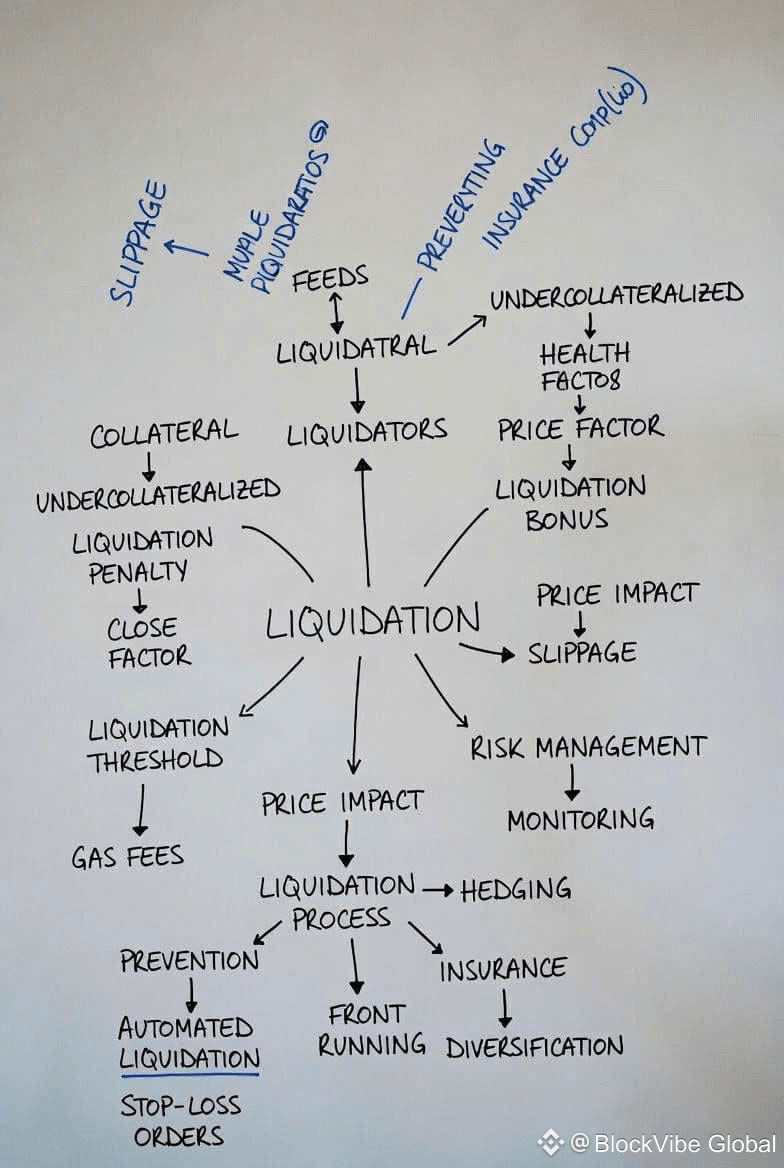 SLIPPAGE
MUALE
PIQUIDARATOS
PREVERYTING
INSURANCE COMP(LIO)
FEEDS
LIQUIDATRAL
LIQUIDATORS
UNDERCOLLATERALIZED
HEALTH
FACTO8
PRICE FACTOR
LIQUIDATION
BONUS
COLLATERAL
UNDERCOLLATERALIZED
LIQUIDATION
PENALTY
CLOSE
FACTOR
LIQUIDATION
PRICE IMPACT
SLIPPAGE
LIQUIDATION
THRESHOLD
GAS FEES
PRICE IMPACT
RISK MANAGEMENT
MONITORING
LIQUIDATION
PROCESS
HEDGING
PREVENTION
AUTOMATED
LIQUIDATION
STOP-LOSS
ORDERS
FRONT
RUNNING
INSURANCE
DIVERSIFICATION
@BlockVibe Global